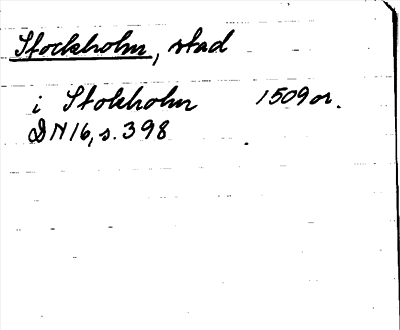 Stockholm, stad
i Stokholm 1509 or.
DN16, s. 398